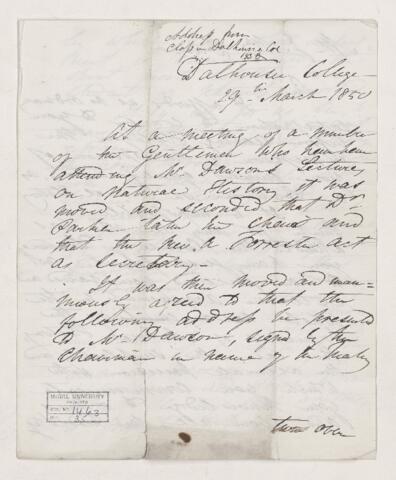 Address from
Class in Dalhousie Col
1850
Dalhousie College
29th March 1850
At a meeting of a number
of the Gentlemen who have been
attending Mr Dawsons Lectures
on Natural History it was
moved and seconded that Dr
Parker take the chair and
that the Rev. A Forrester act
as Secretary.
It was then moved and unani=
mously agreed to that the
following address be presented
to Mr Dawson, signed by the
Chairman in name of the Meeting
turn over
McGILL UNIVERSITY
ARCHIVES
ACC. NO. 1463